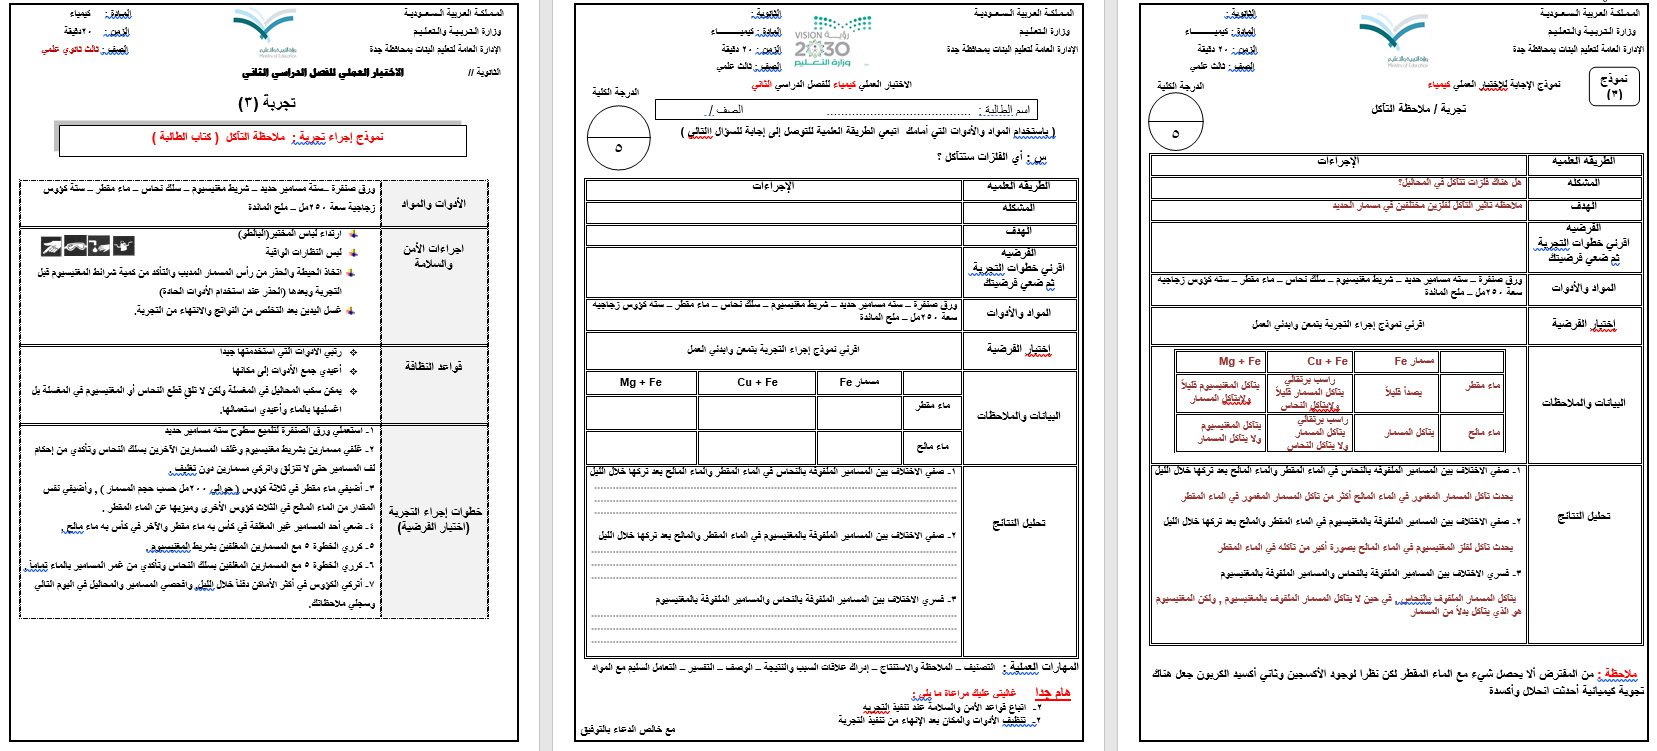 المملكة العربية السعودية
وزارة التربية والتعليم
الإدارة العامة لتعليم البنات بمحافظة جدة
الثانوية :
المادة : كيميــــــاء
الزمن : ٢٠ دقيقة
الصف : ثالث علمي
Ministry of Education
نموذج
(٣)
نموذج الإجابة للاختبار العملي كيمياء
تجربة / ملاحظة التآكل
الدرجة الكلية
٥
الطريقه العلميه
الإجراءات
المشكله
هل هناك فلزات تتآكل في المحاليل؟
الهدف
ملاحظه تاثير التآكل لفلزين مختلفين في مسمار الحديد
الفرضيه
اقرئي خطوات التجربة
ثم ضعي فرضيتك
المواد والأدوات
ورق صنفرة – سته مسامير حديد – شريط مغنيسيوم – سلك نحاس – ماء مقطر – سته كؤوس زجاجيه
سعة ٢٥٠مل – ملح المائدة
إختبار الفرضية
اقرئي نموذج إجراء التجربة بتمعن وابدئي العمل
البيانات والملاحظات
مسمار Fe
Cu + Fe
Mg + Fe
ماء مقطر
يصدأ قليلاً
راسب برتقالي
يتآكل المسمار قليلاً
ولايتآكل النحاس
يتآكل المغنيسيوم قليلاً
ولايتآكل المسمار
ماء مالح
يتآكل المسمار
راسب برتقالي
يتآكل المسمار
ولا يتآكل النحاس
يتآكل المغنيسيوم
ولا يتآكل المسمار
تحليل النتائج
١- صفي الاختلاف بين المسامير الملفوفه بالنحاس في الماء المقطر والماء المالح بعد تركها خلال الليل
يحدث تآكل المسمار المغمور في الماء المالح أكثر من تآكل المسمار المغمور في الماء المقطر
٢- صفي الاختلاف بين المسامير الملفوفه بالمغنيسيوم في الماء المقطر والمالح بعد تركها خلال الليل
يحدث تآكل لفلز المغنيسيوم في الماء المالح بصورة أكبر من تآكله في الماء المقطر
٣- فسري الاختلاف بين المسامير الملفوفة بالنحاس والمسامير الملفوفة بالمغنيسيوم
يتآكل المسمار الملفوف بالنحاس , في حين لا يتآكل المسمار الملفوف بالمغنيسيوم , ولكن المغنيسيوم
هو الذي يتآكل بدلاً من المسمار
ملاحظة : من المفترض ألا يحصل شيء مع الماء المقطر لكن نظرا لوجود الأكسجين وثاني أكسيد الكربون جعل هناك
تجوية كيميائية أحدثت انحلال وأكسدة
المملكة العربية السعودية
وزارة التعليم
الإدارة العامة لتعليم البنات بمحافظة جدة
رؤية
VISION
2030
وزارة التعليم
الثانوية :
المادة : كيميــــــاء
الزمن : ٢٠ دقيقة
الصف : ثالث علمي
الاختبار العملي كيمياء للفصل الدراسي الثاني
الدرجة الكلية
٥
اسم الطالبة : ........................................ الصف /
( باستخدام المواد والأدوات التي أمامك اتبعي الطريقة العلمية للتوصل إلى إجابة للسؤال االتالي )
س : أي الفلزات ستتآكل ؟
الطريقه العلميه
الإجراءات
المشكله
الهدف
الفرضيه
اقرئي خطوات التجربة
ثم ضعي فرضيتك
المواد والأدوات
ورق صنفرة – سته مسامير حديد – شريط مغنيسيوم – سلك نحاس – ماء مقطر – سته كؤوس زجاجيه
سعة ٢٥٠مل – ملح المائدة
إختبار الفرضية
اقرئي نموذج إجراء التجربة بتمعن وابدئي العمل
البيانات والملاحظات
مسمار Fe
Cu + Fe
Mg + Fe
ماء مقطر
ماء مالح
تحليل النتائج
١- صفي الاختلاف بين المسامير الملفوفه بالنحاس في الماء المقطر والماء المالح بعد تركها خلال الليل
٢- صفي الاختلاف بين المسامير الملفوفه بالمغنيسيوم في الماء المقطر والمالح بعد تركها خلال الليل
٣- فسري الاختلاف بين المسامير الملفوفة بالنحاس والمسامير الملفوفة بالمغنيسيوم
المهارات العملية : التصنيف – الملاحظة والاستنتاج – إدراك علاقات السبب والنتيجة – الوصف – التفسير – التعامل السليم مع المواد
هام جدا غاليتي عليك مراعاة ما يلي :
٢- اتباع قواعد الأمن والسلامة عند تنفيذ التجربه
٢- تنظيف الأدوات والمكان بعد الإنهاء من تنفيذ التجربة
مع خالص الدعاء بالتوفيق
المملكة العربية السعودية
وزارة التربية والتعليم
الإدارة العامة لتعليم البنات بمحافظة جدة
الثانوية //
المادة : كيمياء
الزمن : ٢٠دقيقة
الصف : ثالث ثانوي علمي
الاختبار العملي للفصل الدراسي الثاني
تجربة (٣)
نموذج إجراء تجربة : ملاحظة التآكل ( كتاب الطالبة )
الأدوات والمواد
ورق صنفرة –ستة مسامير حديد – شريط مغنيسيوم – سلك نحاس – ماء مقطر – ستة كؤوس
زجاجية سعة ٢٥٠مل – ملح المائدة
اجراءات الأمن
والسلامة
ارتداء لباس المختبر(البالطو)
لبس النظارات الواقية
اتخاذ الحيطة والحذر من رأس المسمار المدبب والتأكد من كمية شرائط المغنيسيوم قبل
التجربة وبعدها (الحذر عند استخدام الأدوات الحادة)
غسل اليدين بعد التخلص من النواتج والانتهاء من التجربة.
قواعد النظافة
رتبي الأدوات التي استخدمتها جيدا
أعيدي جمع الأدوات إلى مكانها
يمكن سكب المحاليل في المغسلة ولكن لا تلق قطع النحاس أو المغنيسيوم في المغسلة بل
اغسليها بالماء وأعيدي استعمالها.
خطوات إجراء التجربة
(اختبار الفرضية)
١- استعملي ورق الصنفرة لتلميع سطوح سته مسامير حديد
٢- غلفي مسمارين بشريط مغنيسيوم وغلف المسمارين الآخرين بسلك النحاس وتأكدي من إحكام
لف المسامير حتى لا تنزلق واتركي مسمارين دون تغليف .
٣- أضيفي ماء مقطر في ثلاثة كؤوس ( حوالي ٢٠٠مل حسب حجم المسمار ) , وأضيفي نفس
المقدار من الماء المالح في الثلاث كؤوس الأخرى وميزيها عن الماء المقطر .
٤- ضعي أحد المسامير غير المغلفة في كأس به ماء مقطر والآخر في كأس به ماء مالح .
٥- كرري الخطوة ٥ مع المسمارين المغلفين بشريط المغنيسيوم.
٦- كرري الخطوة ٥ مع المسمارين المغلفين بسلك النحاس وتأكدي من غمر المسامير بالماء تماماً .
٧- أتركي الكؤوس في أكثر الأماكن دفئاً خلال الليل وافحصي المسامير والمحاليل في اليوم التالي
وسجلي ملاحظاتك.